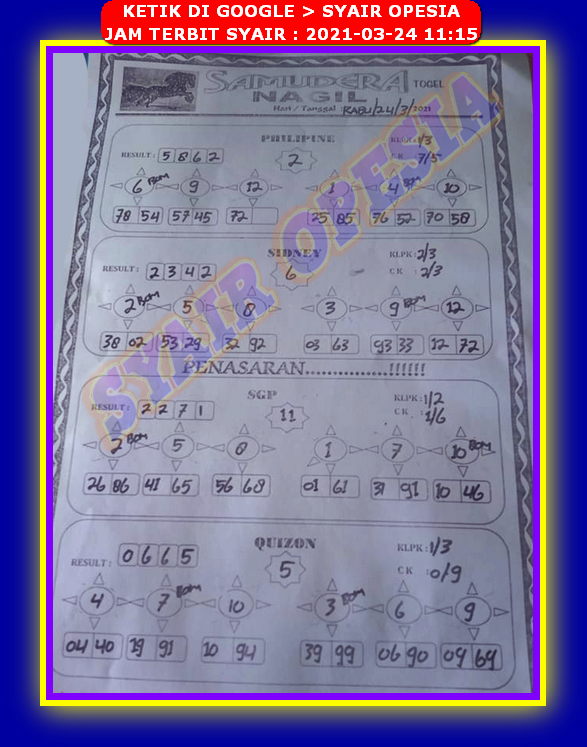 KETIK DI GOOGLE > SYAIR OPESIA
JAM TERBIT SYAIR : 2021-03-24 11:15
SAMUDERA TOGEL
NAGIL
Hari / Tanggal : RABU/24/3/2021
PHILIPINE
RESULT : 5 8 6 2
2
KLPK : 1/3
CK : 7/5
6 BOM 9 12 1 4 BM 10
78 54 57 45 72 25 85 76 52 70 58
SIDNEY
RESULT : 2 3 4 2
6
KLPK : 2/3
CK : 2/3
2 BOM 5 8 3 9 BOM 12
38 02 53 29 32 92 03 63 93 33 12 72
PENASARAN...............!!!!!!
SGP
RESULT : 2 2 7 1
11
KLPK : 1/2
CK : 1/6
2 BOM 5 8 1 7 10 BOM
26 86 41 65 56 68 01 61 31 91 10 46
QUIZON
RESULT : 0 6 6 5
5
KLPK : 1/3
CK : 0/9
4 7 BOM 10 3 BOM 6 9
04 40 19 91 10 94 39 99 06 90 09 69
SYAIR OPESIA